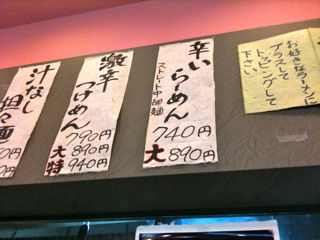 お好きなラーメンに
プラスして
トッピングして
下さい
辛いらーめん
ストレート中細麺
740円
大 890円
激辛
つけめん
790円
大 890円
特 940円
汁なし
担々麺